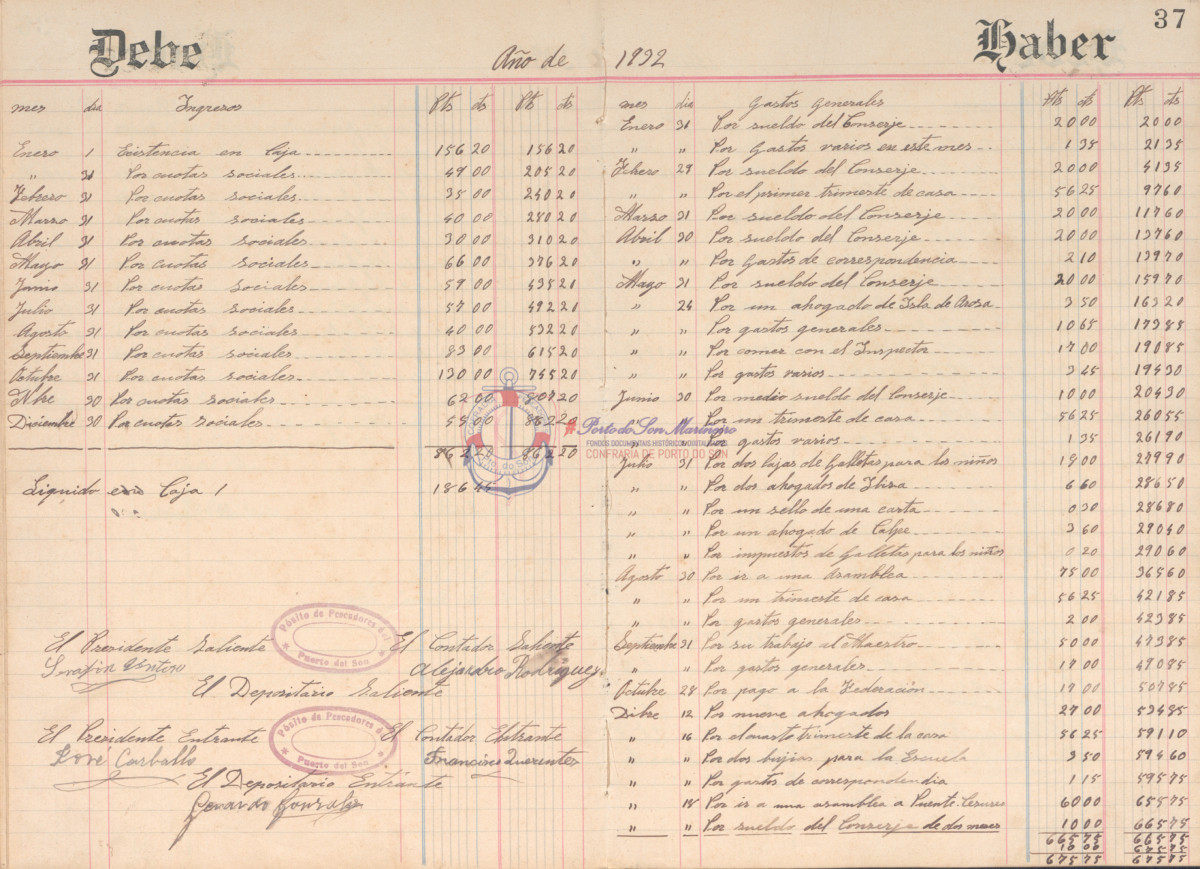 37
Debe Año de 1932 Haber
mes dia Ingresos Pts cts Pts cts
Enero 1 Existencia en Caja 156 20 156 20
" 31 Por cuotas sociales 49 00 205 20
Febrero 31 Por cuotas sociales 35 00 240 20
Marzo 31 Por cuotas sociales 40 00 280 20
Abril 31 Por cuotas sociales 30 00 310 20
Mayo 31 Por cuotas sociales 66 00 376 20
Junio 31 Por cuotas sociales 59 00 435 21
Julio 31 Por cuotas sociales 57 00 492 21
Agosto 31 Por cuotas sociales 40 00 532 20
Septiembre 31 Por cuotas sociales 83 00 615 20
Octubre 31 Por cuotas sociales 130 00 745 20
Nbre 30 Por cuotas sociales 62 00 807 20
Diciembre 30 Por cuotas sociales 55 00 862 20
862 20 862 20
Liquido Caja 1 186 45
El Presidente Saliente El Contador Saliente
Alejandro Rodriguez
El Depositario Saliente
El Presidente Entrante El Contador Entrante
José Carballo Francisco
El Depositario Entrante
Gerardo González
Pósito de Pescadores del
Puerto del Son
Pósito de Pescadores del
Puerto del Son
mes dia Gastos Generales Pts cts Pts cts
Enero 31 Por sueldo del Conserje 20 00 20 00
" " Por Gastos varios en este mes 1 35 21 35
Febrero 29 Por sueldo del Conserje 20 00 41 35
" " Por el primer trimeste de casa 56 25 97 60
Marzo 31 Por sueldo del Conserje 20 00 117 60
Abril 30 Por sueldo del Conserje 20 00 137 60
" " Por Gastos de correspondencia 2 10 139 70
Mayo 31 Por sueldo del Conserje 20 00 159 70
" 24 Por un ahogado de Isla de Arosa 3 50 163 20
" " Por gastos generales 10 65 173 85
" " Por comer con el Inspector 17 00 190 85
" " Por gastos varios 3 45 194 30
Junio 30 Por medio sueldo del Conserje 10 00 204 30
" " Por un trimeste de casa 56 25 260 55
" " Por gastos varios 1 35 261 90
Julio 31 Por dos cajas de Galletas para los niños 18 00 279 90
" " Por dos ahogados de Ibiza 6 60 286 50
" " Por un sello de una carta 0 30 286 80
" " Por un ahogado de Calpe 3 60 290 40
" " Por impuestos de Galletas para los niños 0 20 290 60
Agosto 30 Por ir a una Asamblea 75 00 365 60
" " Por un trimeste de casa 56 25 421 85
" " Por gastos generales 2 00 423 85
Septiembre 31 Por su trabajo al Maestro 50 00 473 85
" " Por gastos generales 17 00 490 85
Octubre 28 Por pago a la Federación 17 00 507 85
Dibre 12 Por nueve ahogados 27 00 534 85
" 16 Por el cuarto trimeste de la casa 56 25 591 10
" " Por dos bujias para la Escuela 3 50 594 60
" " Por gastos de correspondendia 1 15 595 75
" 18 Por ir a una asamblea a Puente Cesures 60 00 655 75
" " Por sueldo del Conserje de dos meses 10 00 665 75
665 75 665 75
10 00
675 75 675 75
Porto do Son Mariñeiro
FONDOS DOCUMENTAIS HISTÓRICOS DIXITALIZADOS
CONFRARÍA DE PORTO DO SON